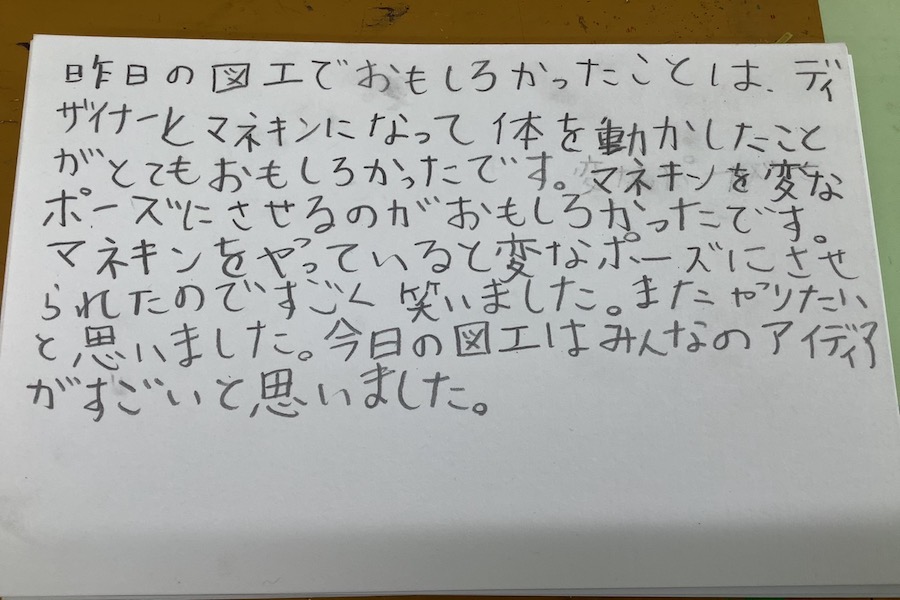 昨日の図工でおもしろかったことは、ディ
ザイナーとマネキンになって体を動かしたこと
がとてもおもしろかったです。マネキンを変な
ポーズにさせるのがおもしろかったです。
マネキンをやっていると変なポーズにさせ
られたのですごく笑いました。またやりたい
と思いました。今日の図工はみんなのアイディア
がすごいと思いました。